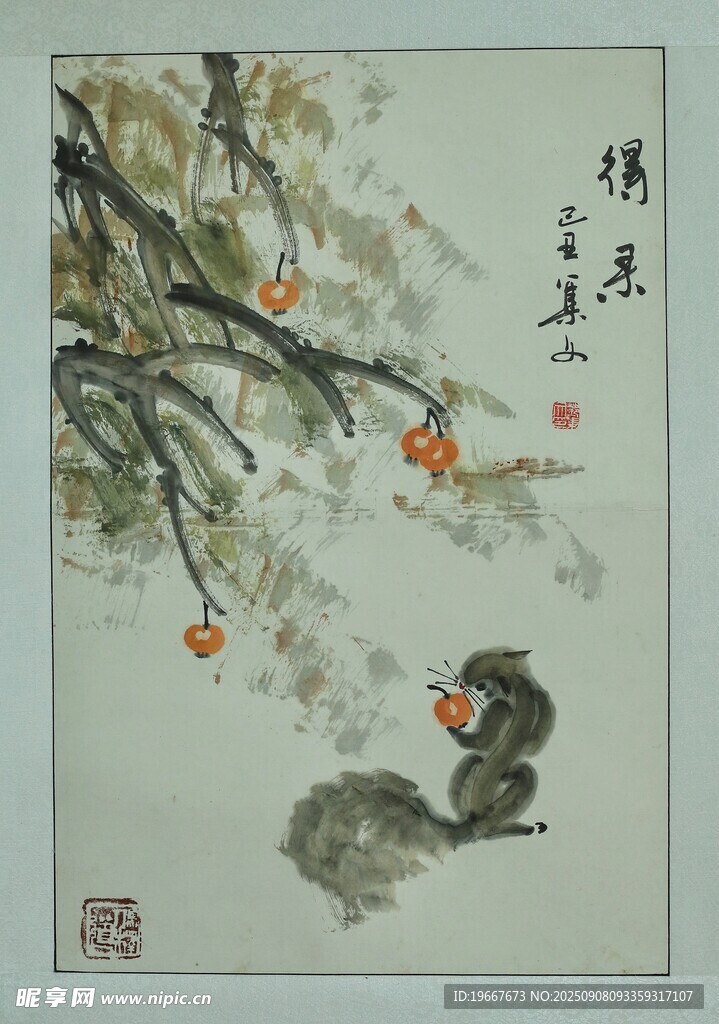 得果
己丑 集文
昵享网 www.nipic.cn
ID:19667673 NO:20250908093359317107